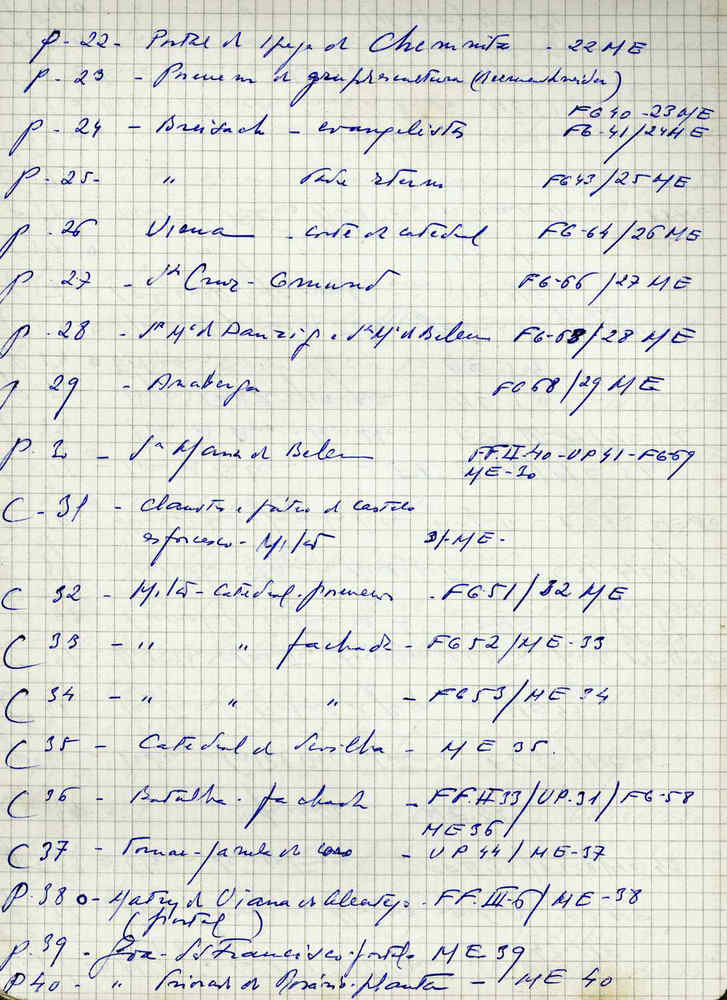 p - 22 - Portal d Igreja d Chemnitz - 22 ME
p - 23 - Pormenor d grup
FG 40 - 23 ME
p - 24 - Breisach - evangelistas FG-41/24 ME
p - 25 - " FG43/25 ME
p. 26 Viena - corte d catedral FG-64/26 ME
p - 27 - Stª Cruz - Gmund FG-66/27 ME
p. 28 - Stª Mª d Danzig e Stª Mª d Belem FG-68/28 ME
29 - Anaberga FG 68/29 ME
P. 30 - Stª Maria d Belem FF.II-40-UP41-FG-59
ME-30
C - 31 - Claustro e pátio d castelo
esforcesco - Milão 31-ME-
C 32 - Milão - Catedral. pormenor - FG51/32 ME
C 33 - " " fachada - FG52/ME-33
C 34 - " " " - FG53/ME 34
C 35 - Catedral d Sevilha - ME 35.
C 36 - Batalha. fachada - FF.II33/UP.31/FG-58
ME 36
C 37 - Tomar - janela d coro - UP 44/ME-37
P. 38 - Matriz d Viana do Alentejo. FF.III-6/ME-38
(portal)
p. 39 - Évora - S. Francisco portal ME 39
P 40 - " d Rosário - planta - ME 40